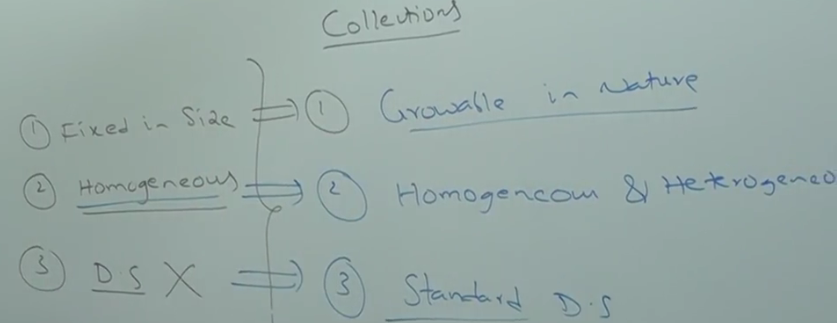 Collections
① Fixed in Size ⟹ ① Growable in Nature
② Homogeneous ⟹ ② Homogeneous & Heterogeneo
③ D.S X ⟹ ③ Standard D.S